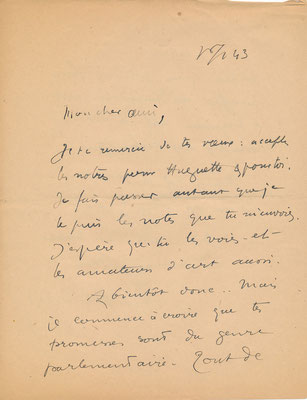 /1 43
Mon cher ami,
Je te remercie de tes vœux : accepte
les nôtres pour Huguette & pour toi.
Je fais passer autant que je
le puis les notes que tu m'envoies.
J'espère que tu les vois - et
les amateurs d'art aussi.
A bientôt donc. Mais
je commence à croire que tes
promesses sont du genre
parlementaire. Tout de